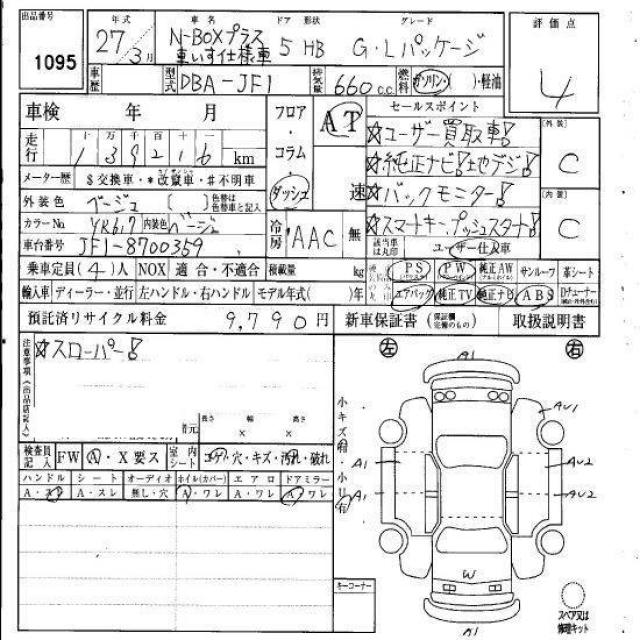 出品番号 年式 車名 ドア 形状 グレード 評価点
1095 27/3月 N-BOXプラス 車いす仕様車 5 HB G・Lパッケージ 4
車歴 型式 DBA-JF1 排気量 660 c.c. 燃料 ガソリン・( )・軽油
車検 年 月 フロア・コラム・ダッシュ AT セールスポイント
走行 1 3 9 2 1 6 km
十万千百十一
☆ユーザー買取車! 外装 C
☆純正ナビ!地デジ!
メーター歴 $交換車・*改竄車・#不明車
速 ☆バックモニター! 内装 C
外装色 ベージュ ( ) 色替は色替車と記入
カラーNo. YR617 内装色 ベージュ
☆スマートキー、プッシュスタート!
車台番号 JF1-8700359 冷房 AAC 無 該当車は丸印 ユーザー仕入車
乗車定員(4)人 NOX 適合・不適合 積載量 kg PS PW 純正AW サンルーフ 革シート
輸入車 ディーラー・並行 左ハンドル・右ハンドル モデル年式( )年 エアバッグ 純正TV 純正ナビ ABS Dチューナー
預託済リサイクル料金 9,790円 新車保証書 取扱説明書
注意事項(出品店記入) ☆スローパー!
左 右
長さ 幅 高さ
元 × ×
検査員記入 FW A・X要ス 室内シート コゲ・穴・キズ・汚れ・破れ
ハンドル シート オーディオ ホイル(カバー) エアロ ドアミラー
A・スレ A・スレ 無し・穴 A・ワレ A・ワレ A・ワレ
小キズ有・小U有
A1
AU1
A1 AU2
A1 AU2
W
A1
キーコーナー
スペア又は修理キット